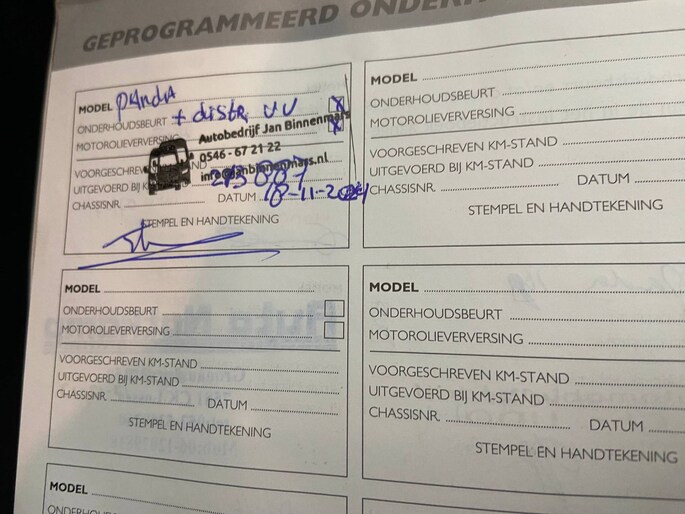 GEPROGRAMMEERD
MODEL PANDA
ONDERHOUDSBEURT + distr. VV
MOTOROLIEVERVERSING
Autobedrijf Jan Binnenmars
0546 - 67 21 22
info@janbinnenmars.nl
VOORGESCHREVEN KM-STAND
UITGEVOERD BIJ KM
CHASSISNR. DATUM 18-11-2024
STEMPEL EN HANDTEKENING
MODEL
ONDERHOUDSBEURT
MOTOROLIEVERVERSING
VOORGESCHREVEN KM-STAND
UITGEVOERD BIJ KM-STAND
CHASSISNR. DATUM
STEMPEL EN HANDTEKENING
MODEL
ONDERHOUDSBEURT
MOTOROLIEVERVERSING
VOORGESCHREVEN KM-STAND
UITGEVOERD BIJ KM-STAND
CHASSISNR. DATUM
STEMPEL EN HANDTEKENING
MODEL
ONDERHOUDSBEURT
MOTOROLIEVERVERSING
VOORGESCHREVEN KM-STAND
UITGEVOERD BIJ KM-STAND
CHASSISNR. DATUM
STEMPEL EN HANDTEKENING
MODEL